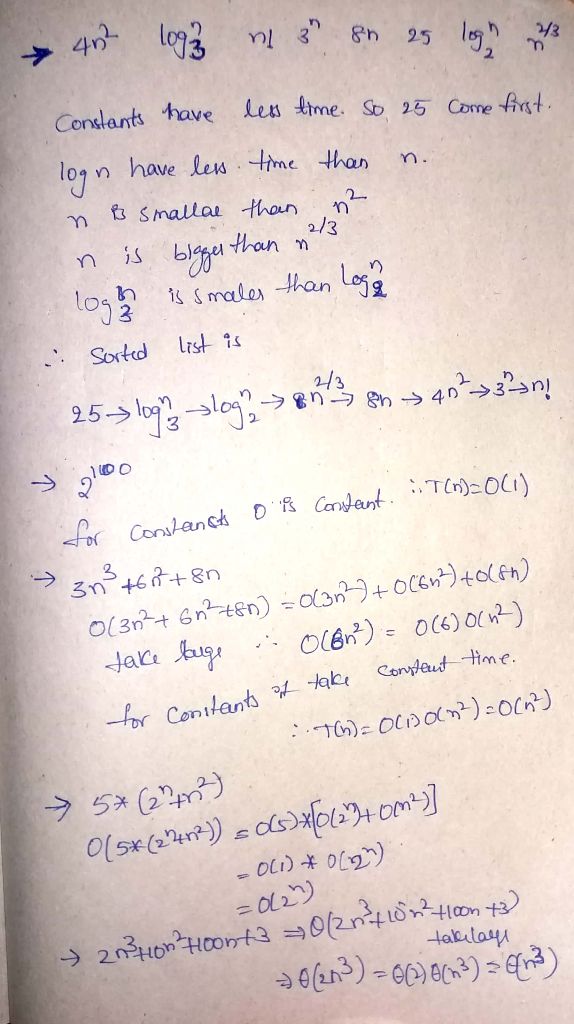 → 4n² log₃ⁿ n! 3ⁿ 8n 25 log₂ⁿ n^2/3
Constants have less time. So, 25 Come first.
log n have less time than n.
n is smallae than n²
n is bigger than n^2/3
log₃ⁿ is smaler than log₂ⁿ
∴ Sorted list is
25→log₃ⁿ→log₂ⁿ→n^2/3→8n→4n²→3ⁿ→n!
→ 2^100
for Constancts O is Constant. ∴T(n)=O(1)
→ 3n³+6n²+8n
O(3n²+6n²+8n) = O(3n²)+O(6n²)+O(8n)
take large ∴ O(6n²) = O(6)O(n²)
for Constants it take constant time.
∴T(n)=O(1)O(n²)=O(n²)
→ 5*(2ⁿ+n²)
O(5*(2ⁿ+n²)) = O(5)*[O(2ⁿ)+O(n²)]
= O(1) * O(2ⁿ)
= O(2ⁿ)
→ 2n³+10n²+100n+3 ⇒θ(2n³+10n²+100n+3)
take large
⇒θ(2n³) = θ(2)θ(n³) = θ(n³)